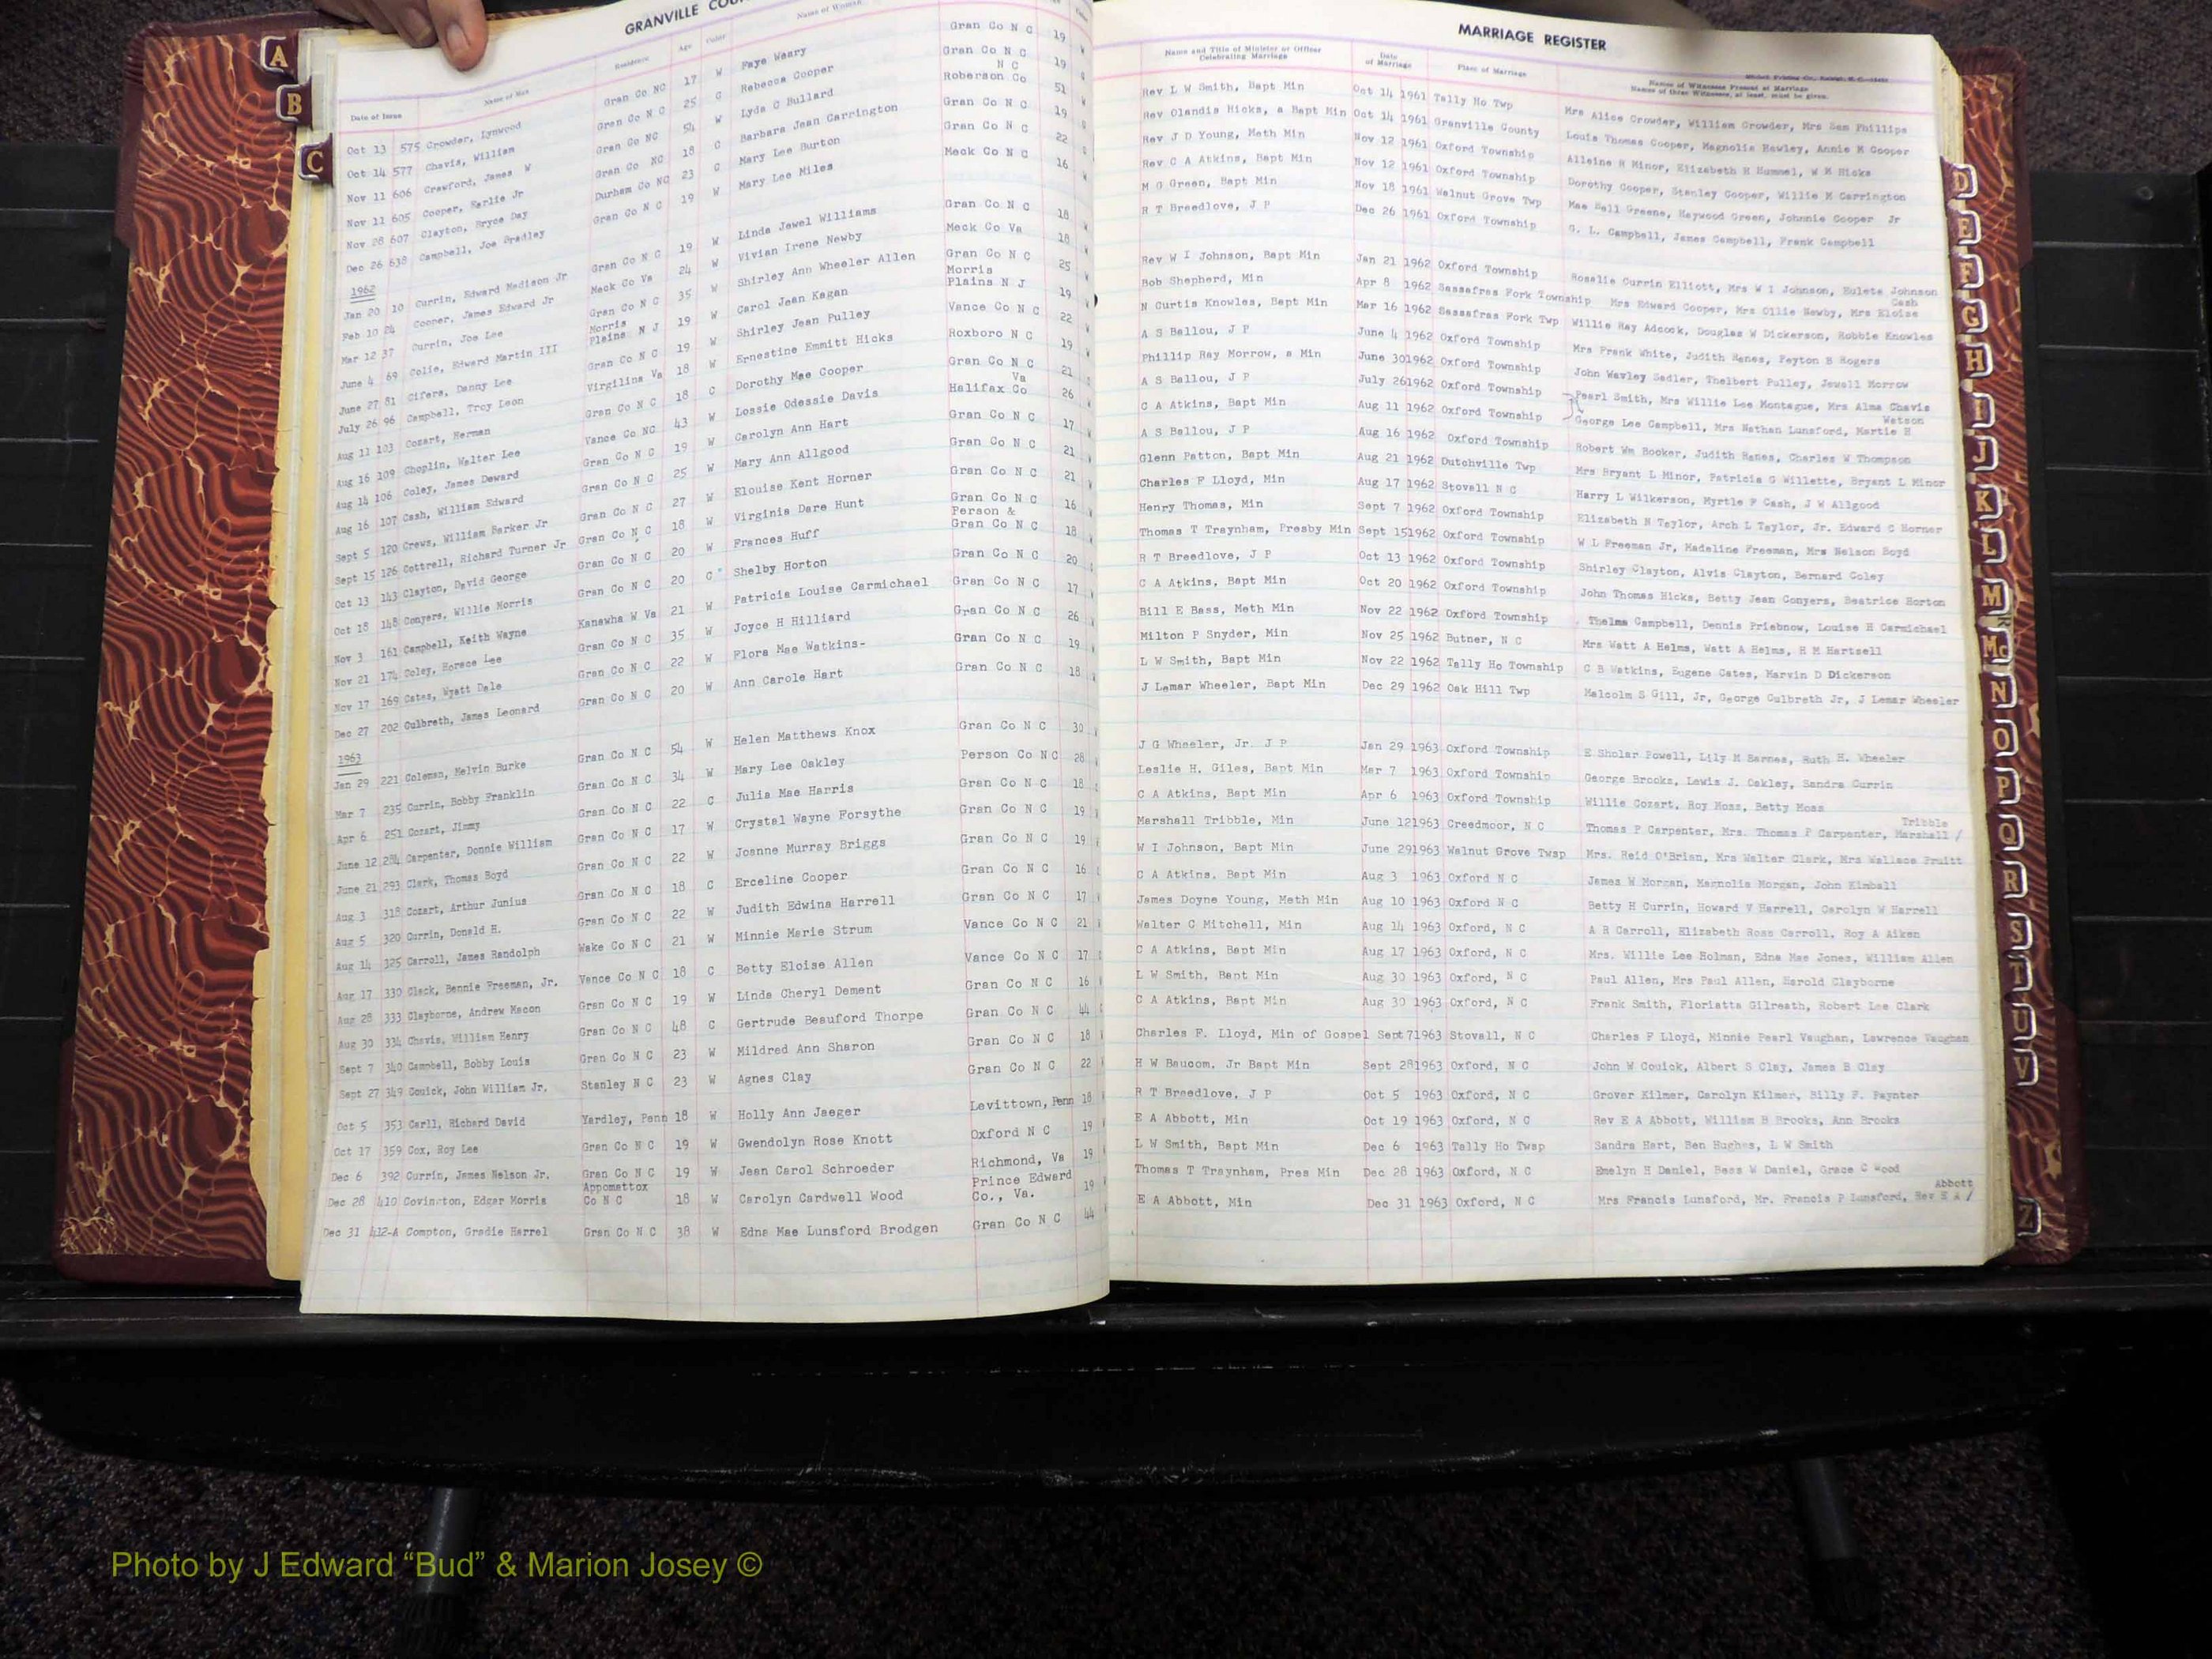 GRANVILLE
MARRIAGE REGISTER
A
B
C
Date of Issue
Name of Man
Residence
Age
Color
Name of Woman
Name and Title of Minister or Officer Celebrating Marriage
Date of Marriage
Place of Marriage
Names of Witnesses Present at Marriage
Names of three Witnesses, at least, must be given.
Oct 13 575 Crowder, Lynwood Gran Co NC 17 W Faye Weary Gran Co N C 19 Rev L W Smith, Bapt Min Oct 14 1961 Tally Ho Twp Mrs Alice Crowder, William Crowder, Mrs Sam Phillips
Oct 14 577 Chavis, William Gran Co N C 25 C Rebecca Cooper Gran Co N C 19 Rev Olandis Hicks, a Bapt Min Oct 14 1961 Granville County Louis Thomas Cooper, Magnolia Hawley, Annie M Cooper
Nov 11 606 Crawford, James W Gran Co NC 54 W Lyda C Bullard N C Roberson Co 51 Rev J D Young, Meth Min Nov 12 1961 Oxford Township Alleine H Minor, Elizabeth H Hummel, W M Hicks
Nov 11 605 Cooper, Earlie Jr Gran Co NC 18 C Barbara Jean Carrington Gran Co N C 19 Rev C A Atkins, Bapt Min Nov 12 1961 Oxford Township Dorothy Cooper, Stanley Cooper, Willie M Carrington
Nov 28 607 Clayton, Bryce Day Durham Co NC 23 C Mary Lee Burton Gran Co N C 22 M G Green, Bapt Min Nov 18 1961 Walnut Grove Twp Mae Bell Greene, Haywood Green, Johnnie Cooper Jr
Dec 26 638 Campbell, Joe Bradley Gran Co N C 19 W Mary Lee Miles Meck Co N C 16 R T Breedlove, J P Dec 26 1961 Oxford Township G. L. Campbell, James Campbell, Frank Campbell
1962
Jan 20 10 Currin, Edward Madison Jr Gran Co N C 19 W Linda Jewel Williams Gran Co N C 18 Rev W I Johnson, Bapt Min Jan 21 1962 Oxford Township Rosalie Currin Elliott, Mrs W I Johnson, Eulete Johnson
Feb 10 24 Cooper, James Edward Jr Meck Co Va 24 W Vivian Irene Newby Meck Co Va 18 Bob Shepherd, Min Apr 8 1962 Sassafras Fork Township Mrs Edward Cooper, Mrs Ollie Newby, Mrs Eloise Cash
Mar 12 37 Currin, Joe Lee Gran Co N C 35 W Shirley Ann Wheeler Allen Gran Co N C 25 N Curtis Knowles, Bapt Min Mar 16 1962 Sassafras Fork Twp Willie Ray Adcock, Douglas W Dickerson, Robbie Knowles
June 4 69 Colie, Edward Martin III Morris Plains N J 19 W Carol Jean Kagan Morris Plains N J 19 A S Ballou, J P June 4 1962 Oxford Township Mrs Frank White, Judith Hanes, Peyton B Rogers
June 27 81 Cifers, Danny Lee Gran Co N C 19 W Shirley Jean Pulley Vance Co N C 22 Phillip Ray Morrow, a Min June 30 1962 Oxford Township John Wavley Sadler, Thelbert Pulley, Jewell Morrow
July 26 96 Campbell, Troy Leon Virgilina Va 18 W Ernestine Emmitt Hicks Roxboro N C 19 A S Ballou, J P July 26 1962 Oxford Township Pearl Smith, Mrs Willie Lee Montague, Mrs Alma Chavis
Aug 11 103 Cozart, Herman Gran Co N C 18 C Dorothy Mae Cooper Gran Co N C 21 C A Atkins, Bapt Min Aug 11 1962 Oxford Township George Lee Campbell, Mrs Nathan Lunsford, Martie H Watson
Aug 16 109 Choplin, Walter Lee Vance Co NC 43 W Lossie Odessie Davis Va Halifax Co 26 A S Ballou, J P Aug 16 1962 Oxford Township Robert Wm Booker, Judith Hanes, Charles W Thompson
Aug 14 106 Coley, James Deward Gran Co N C 19 W Carolyn Ann Hart Gran Co N C 17 Glenn Patton, Bapt Min Aug 21 1962 Dutchville Twp Mrs Bryant L Minor, Patricia G Willette, Bryant L Minor
Aug 16 107 Cash, William Edward Gran Co N C 25 W Mary Ann Allgood Gran Co N C 21 Charles F Lloyd, Min Aug 17 1962 Stovall N C Harry L Wilkerson, Myrtle F Cash, J W Allgood
Sept 5 120 Crews, William Barker Jr Gran Co N C 27 W Elouise Kent Horner Gran Co N C 21 Henry Thomas, Min Sept 7 1962 Oxford Township Elizabeth N Taylor, Arch L Taylor, Jr. Edward C Horner
Sept 15 126 Cottrell, Richard Turner Jr Gran Co N C 18 W Virginia Dare Hunt Gran Co N C 16 Thomas T Traynham, Presby Min Sept 15 1962 Oxford Township W L Freeman Jr, Madeline Freeman, Mrs Nelson Boyd
Oct 13 143 Clayton, David George Gran Co N C 20 W Frances Huff Person & Gran Co N C 18 R T Breedlove, J P Oct 13 1962 Oxford Township Shirley Clayton, Alvis Clayton, Bernard Coley
Oct 18 148 Conyers, Willie Morris Gran Co N C 20 C Shelby Horton Gran Co N C 20 C A Atkins, Bapt Min Oct 20 1962 Oxford Township John Thomas Hicks, Betty Jean Conyers, Beatrice Horton
Nov 3 161 Campbell, Keith Wayne Kanawha W Va 21 W Patricia Louise Carmichael Gran Co N C 17 Bill E Bass, Meth Min Nov 22 1962 Oxford Township Thelma Campbell, Dennis Priebnow, Louise H Carmichael
Nov 21 174 Coley, Horace Lee Gran Co N C 35 W Joyce H Hilliard Gran Co N C 26 Milton P Snyder, Min Nov 25 1962 Butner, N C Mrs Watt A Helms, Watt A Helms, H M Hartsell
Nov 17 169 Cates, Wyatt Dale Gran Co N C 22 W Flora Mae Watkins- Gran Co N C 19 L W Smith, Bapt Min Nov 22 1962 Tally Ho Township C B Watkins, Eugene Cates, Marvin D Dickerson
Dec 27 202 Culbreth, James Leonard Gran Co N C 20 W Ann Carole Hart Gran Co N C 18 J Lamar Wheeler, Bapt Min Dec 29 1962 Oak Hill Twp Malcolm S Gill, Jr, George Culbreth Jr, J Lamar Wheeler
1963
Jan 29 221 Coleman, Melvin Burke Gran Co N C 54 W Helen Matthews Knox Gran Co N C 30 J G Wheeler, Jr. J P Jan 29 1963 Oxford Township E Sholar Powell, Lily M Barnes, Ruth H. Wheeler
Mar 7 235 Currin, Bobby Franklin Gran Co N C 34 W Mary Lee Oakley Person Co NC 28 Leslie H. Giles, Bapt Min Mar 7 1963 Oxford Township George Brooks, Lewis J. Oakley, Sandra Currin
Apr 6 251 Cozart, Jimmy Gran Co N C 22 C Julia Mae Harris Gran Co N C 18 C A Atkins, Bapt Min Apr 6 1963 Oxford Township Willie Cozart, Roy Moss, Betty Moss
June 12 284 Carpenter, Donnie William Gran Co N C 17 W Crystal Wayne Forsythe Gran Co N C 19 Marshall Tribble, Min June 12 1963 Creedmoor, N C Thomas P Carpenter, Mrs. Thomas P Carpenter, Marshall / Tribble
June 21 293 Clark, Thomas Boyd Gran Co N C 22 W Joanne Murray Briggs Gran Co N C 19 W I Johnson, Bapt Min June 29 1963 Walnut Grove Twsp Mrs. Reid O'Brian, Mrs Walter Clark, Mrs Wallace Pruitt
Aug 3 318 Cozart, Arthur Junius Gran Co N C 18 C Erceline Cooper Gran Co N C 16 C A Atkins. Bapt Min Aug 3 1963 Oxford N C James W Morgan, Magnolia Morgan, John Kimball
Aug 5 320 Currin, Donald H. Gran Co N C 22 W Judith Edwina Harrell Gran Co N C 17 James Doyne Young, Meth Min Aug 10 1963 Oxford N C Betty H Currin, Howard V Harrell, Carolyn W Harrell
Aug 14 325 Carroll, James Randolph Wake Co N C 21 W Minnie Marie Strum Vance Co N C 21 Walter C Mitchell, Min Aug 14 1963 Oxford, N C A R Carroll, Elizabeth Ross Carroll, Roy A Aiken
Aug 17 330 Clack, Bennie Freeman, Jr. Vance Co N C 18 C Betty Eloise Allen Vance Co N C 17 C A Atkins, Bapt Min Aug 17 1963 Oxford, N C Mrs. Willie Lee Holman, Edna Mae Jones, William Allen
Aug 28 333 Clayborne, Andrew Macon Gran Co N C 19 W Linda Cheryl Dement Gran Co N C 16 L W Smith, Bapt Min Aug 30 1963 Oxford, N C Paul Allen, Mrs Paul Allen, Harold Clayborne
Aug 30 334 Chavis, William Henry Gran Co N C 48 C Gertrude Beauford Thorpe Gran Co N C 44 C A Atkins, Bapt Min Aug 30 1963 Oxford, N C Frank Smith, Floriatta Gilreath, Robert Lee Clark
Sept 7 340 Campbell, Bobby Louis Gran Co N C 23 W Mildred Ann Sharon Gran Co N C 18 Charles F. Lloyd, Min of Gospel Sept 7 1963 Stovall, N C Charles F Lloyd, Minnie Pearl Vaughan, Lawrence Vaughan
Sept 27 349 Couick, John William Jr. Stanley N C 23 W Agnes Clay Gran Co N C 22 H W Baucom. Jr Bapt Min Sept 28 1963 Oxford, N C John W Couick, Albert S Clay, James B Clay
Oct 5 353 Carll, Richard David Yardley, Penn 18 W Holly Ann Jaeger Levittown, Penn 18 R T Breedlove, J P Oct 5 1963 Oxford, N C Grover Kilmer, Carolyn Kilmer, Billy F. Paynter
Oct 17 359 Cox, Roy Lee Gran Co N C 19 W Gwendolyn Rose Knott Oxford N C 19 E A Abbott, Min Oct 19 1963 Oxford, N C Rev E A Abbott, William B Brooks, Ann Brooks
Dec 6 392 Currin, James Nelson Jr. Gran Co N C 19 W Jean Carol Schroeder Richmond, Va 19 L W Smith, Bapt Min Dec 6 1963 Tally Ho Twsp Sandra Hart, Ben Hughes, L W Smith
Dec 28 410 Covington, Edgar Morris Appomattox Co N C 18 W Carolyn Cardwell Wood Prince Edward Co., Va. 19 Thomas T Traynham, Pres Min Dec 28 1963 Oxford, N C Emelyn H Daniel, Bess W Daniel, Grace C Wood
Dec 31 412-A Compton, Gradie Harrel Gran Co N C 38 W Edna Mae Lunsford Brodgen Gran Co N C 44 E A Abbott, Min Dec 31 1963 Oxford, N C Mrs Francis Lunsford, Mr. Francis P Lunsford, Rev E A / Abbott
D
E
F
G
H
I
J
K
L
M
Mc
N
O
P
Q
R
S
T
U
V
Z
Photo by J Edward “Bud” & Marion Josey ©